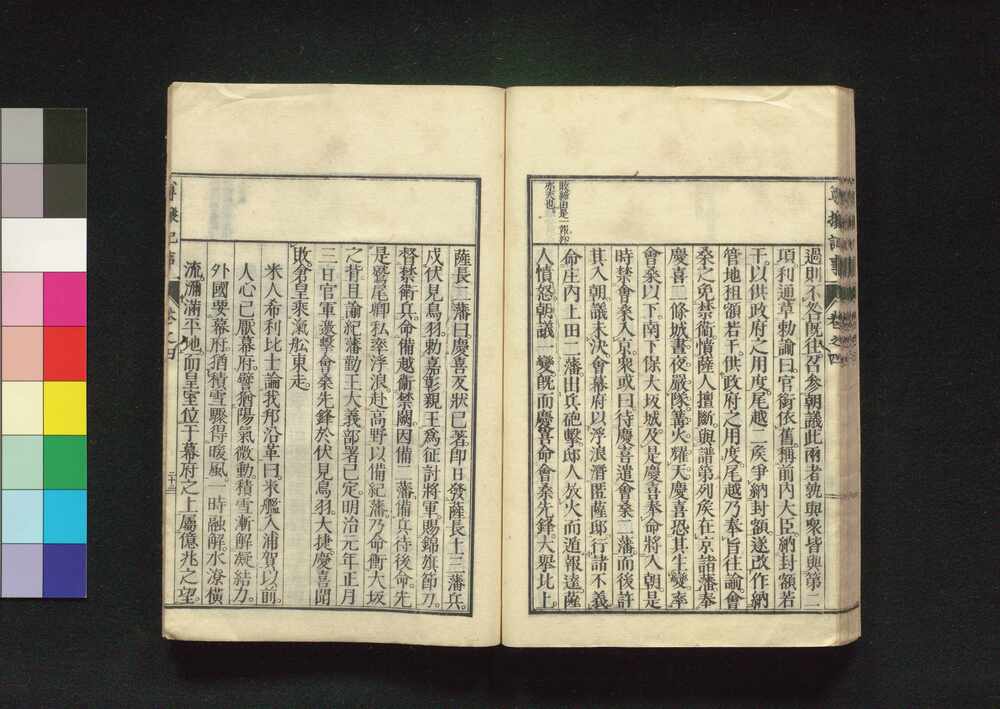 敗績由是一報
亦天也
過則不咎既往召參朝議此兩者孰與衆皆與第二
項利通草勅諭曰官銜依舊稱前內大臣納封額若
干以供政府之用度尾越二矦爭納封額遂改作納
管地租額若干供政府之用度尾越乃奉旨往諭會
桑之免禁衞憤薩人擅斷與譜第列矦在京諸藩奉
慶喜二條城晝夜嚴隊篝火耀天慶喜恐其生變率
會桑以下南下保大坂城及是慶喜奉命將入朝是
時禁會桑入京衆或曰待慶喜遣會桑二藩而後許
其入朝議未決會幕府以浮浪潛匿薩邸行諸不義
命庄內上田二藩出兵砲擊邸人放火而遁報達薩
人憤怒朝議一變既而慶喜命會桑先鋒大擧比上
薩長二藩曰慶喜反狀已著卽日發薩長土三藩兵
戍伏見鳥羽勅嘉彰親王爲征討將軍賜錦旗節刀
督禁衞兵命備越衞禁闕因備二藩備兵待後命先
是鷲尾卿私率浮浪赴高野以備紀藩乃命衝大坂
之背且諭紀藩勤王大義部署已定明治元年正月
三日官軍邀擊會桑先鋒於伏見鳥羽大捷慶喜聞
敗倉皇乘滊舩東走
米人希利比士論我邦沿革曰米艦入浦賀以前
人心已厭幕府譬猶陽氣微動積雪漸解凝結力
外國要幕府猶積雪驟得暖風一時融解水潦橫
流瀰滿平地而皇室位于幕府之上屬億兆之望
卷之四
卷之四